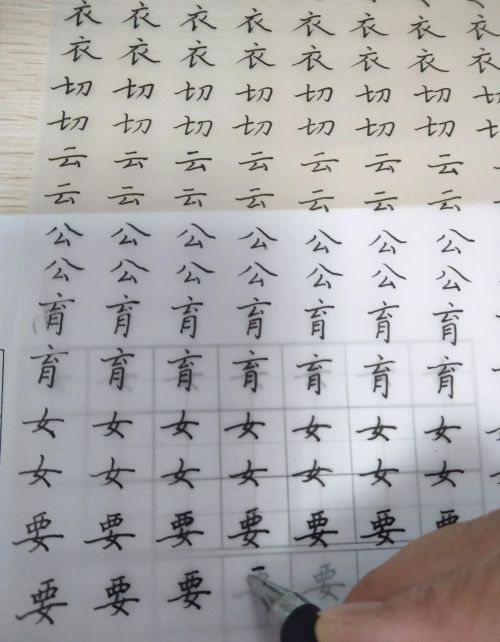 衣 衣 衣 衣 衣 衣 衣
衣 衣 衣 衣 衣 衣 衣
切 切 切 切 切 切 切
切 切 切 切 切 切 切
云 云 云 云 云 云 云
云 云 云 云 云 云 云
公 公 公 公 公 公 公
公 公 公 公 公 公 公
育 育 育 育 育 育 育
育 育 育 育 育 育 育
女 女 女 女 女 女 女
女 女 女 女 女 女 女
要 要 要 要 要 要 要
要 要 要 要